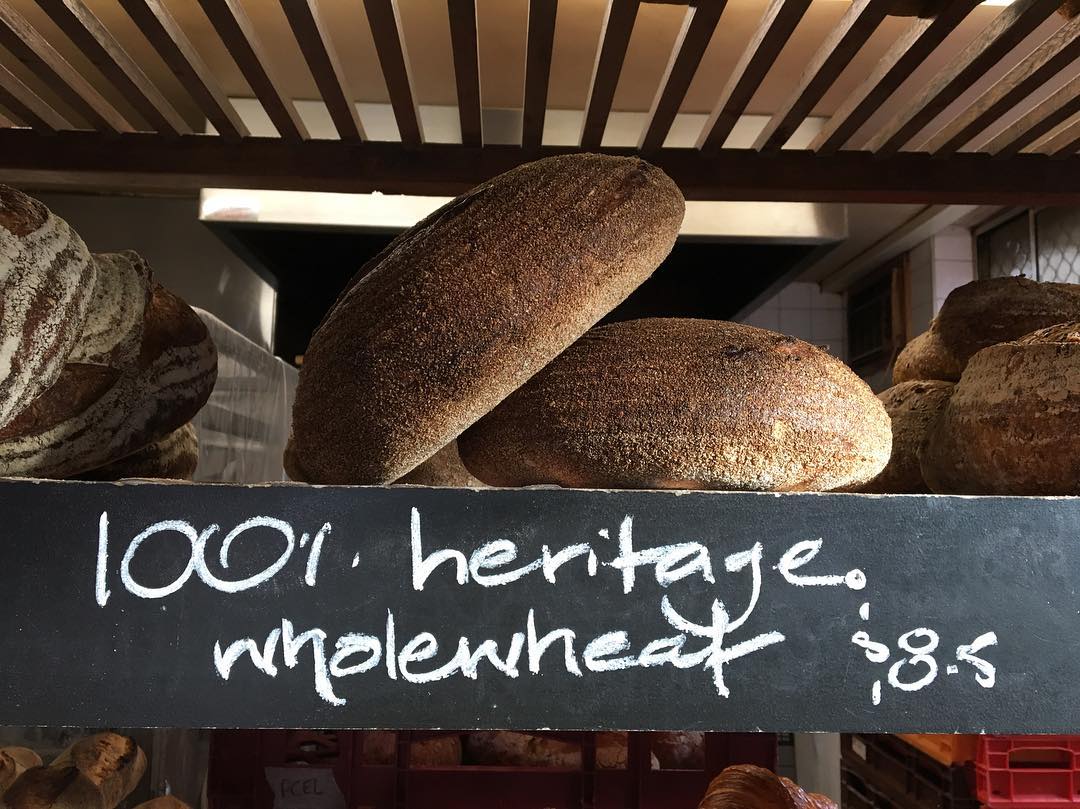 100% heritage.
wholewheat $8.5
PCEL